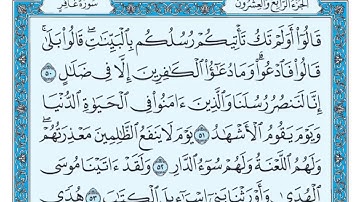 سُورَةُ غَافِرٍ الجُزءُ الرَّابِعُ وَالعِشْرُونَ
قَالُوٓا۟ أَوَلَمْ تَكُ تَأْتِيكُمْ رُسُلُكُم بِٱلْبَيِّنَـٰتِ ۖ قَالُوا۟ بَلَىٰ ۚ
قَالُوا۟ فَٱدْعُوا۟ ۗ وَمَا دُعَـٰٓؤُا۟ ٱلْكَـٰفِرِينَ إِلَّا فِى ضَلَـٰلٍ ٥٠
إِنَّا لَنَنصُرُ رُسُلَنَا وَٱلَّذِينَ ءَامَنُوا۟ فِى ٱلْحَيَوٰةِ ٱلدُّنْيَا
وَيَوْمَ يَقُومُ ٱلْأَشْهَـٰدُ ٥١ يَوْمَ لَا يَنفَعُ ٱلظَّـٰلِمِينَ مَعْذِرَتُهُمْ ۖ
وَلَهُمُ ٱللَّعْنَةُ وَلَهُمْ سُوٓءُ ٱلدَّارِ ٥٢ وَلَقَدْ ءَاتَيْنَا مُوسَى
ٱلْهُدَىٰ وَأَوْرَثْنَا بَنِىٓ إِسْرَٰٓءِيلَ ٱلْكِتَـٰبَ ٥٣ هُدًى